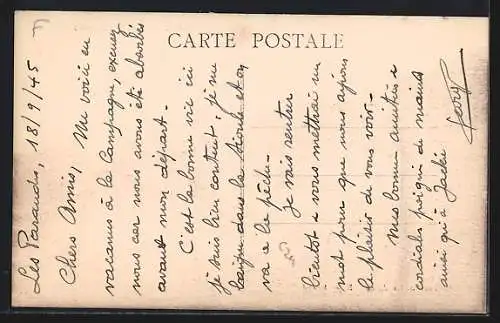 CARTE POSTALE
Les Parauds, 18/9/45
Chers Amis, Me voici en
vacances à la Campagne, excusez
nous car nous avons été absorbés
avant mon départ.
C'est la bonne vie ici
je suis bien content, je me
baigne dans la et on
va a la pêche.
je vais rentrer
bientôt & vous mettrai un
mot pour que nous ayons
le plaisir de vous voir.
Mes bonnes amitiés &
cordiales poignées de mains
ainsi qu'à Jacki